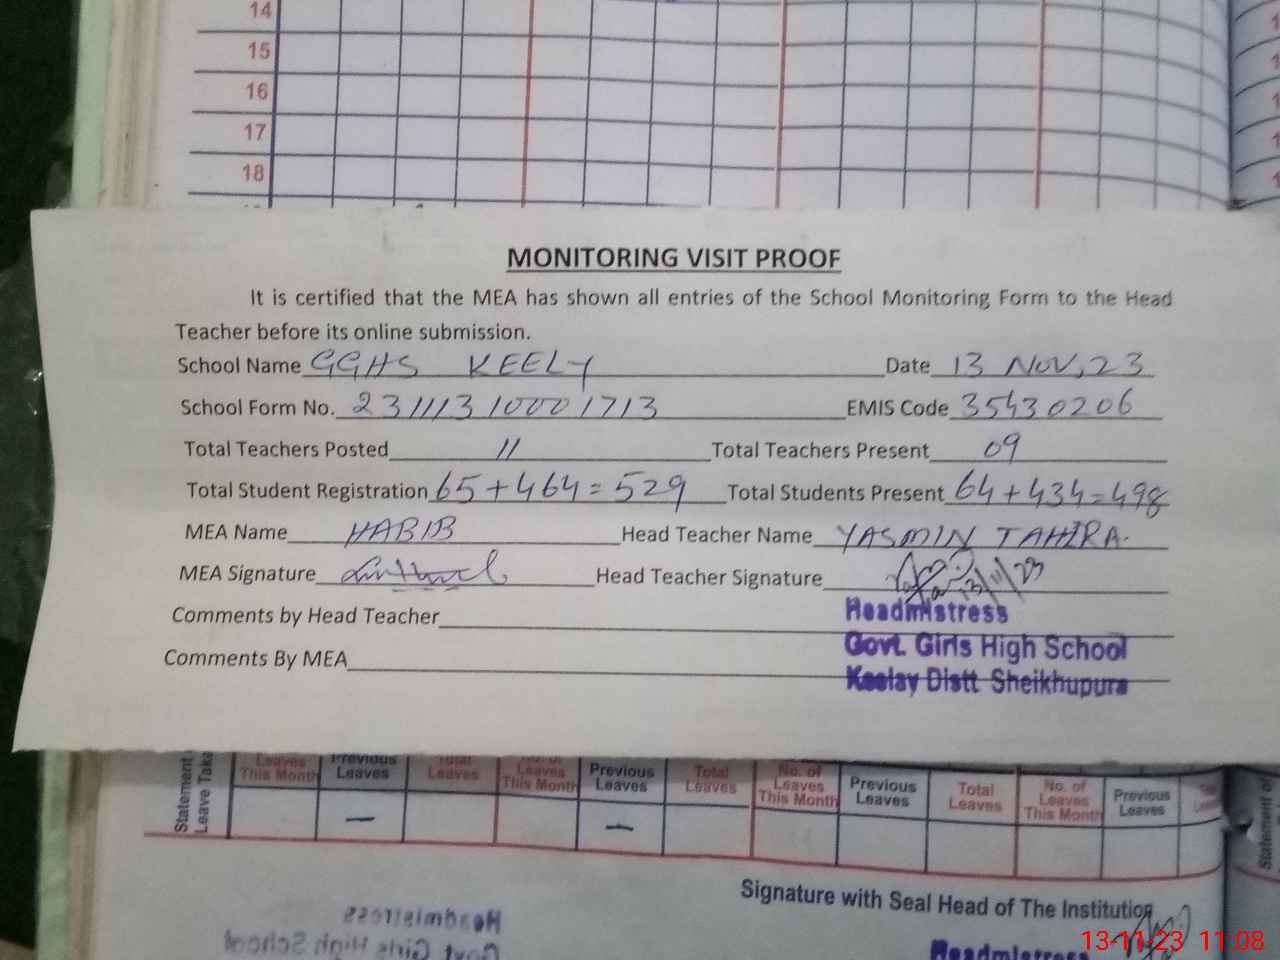 14
15
16
17
18
MONITORING VISIT PROOF
It is certified that the MEA has shown all entries of the School Monitoring Form to the Head
Teacher before its online submission.
School Name GGHS KEELY Date 13 NOV, 23
School Form No. 23111310001713 EMIS Code 35430206
Total Teachers Posted 11 Total Teachers Present 09
Total Student Registration 65+464=529 Total Students Present 64+434=498
MEA Name HABIB Head Teacher Name YASMIN TAHIRA.
MEA Signature Head Teacher Signature 13/11/23
Comments by Head Teacher Headmistress
Govt. Girls High School
Comments By MEA Keelay Distt Sheikhupura
Statement Leaves This Month Previous Leaves Total Leaves No. of Leaves This Month Previous Leaves Total Leaves No. of Leaves This Month Previous Leaves Total Leaves No. of Leaves This Month Previous Leaves
Leave
Signature with Seal Head of The Institution
Headmistress
Govt Girls High School
Headmistress
13-11-23 11:08